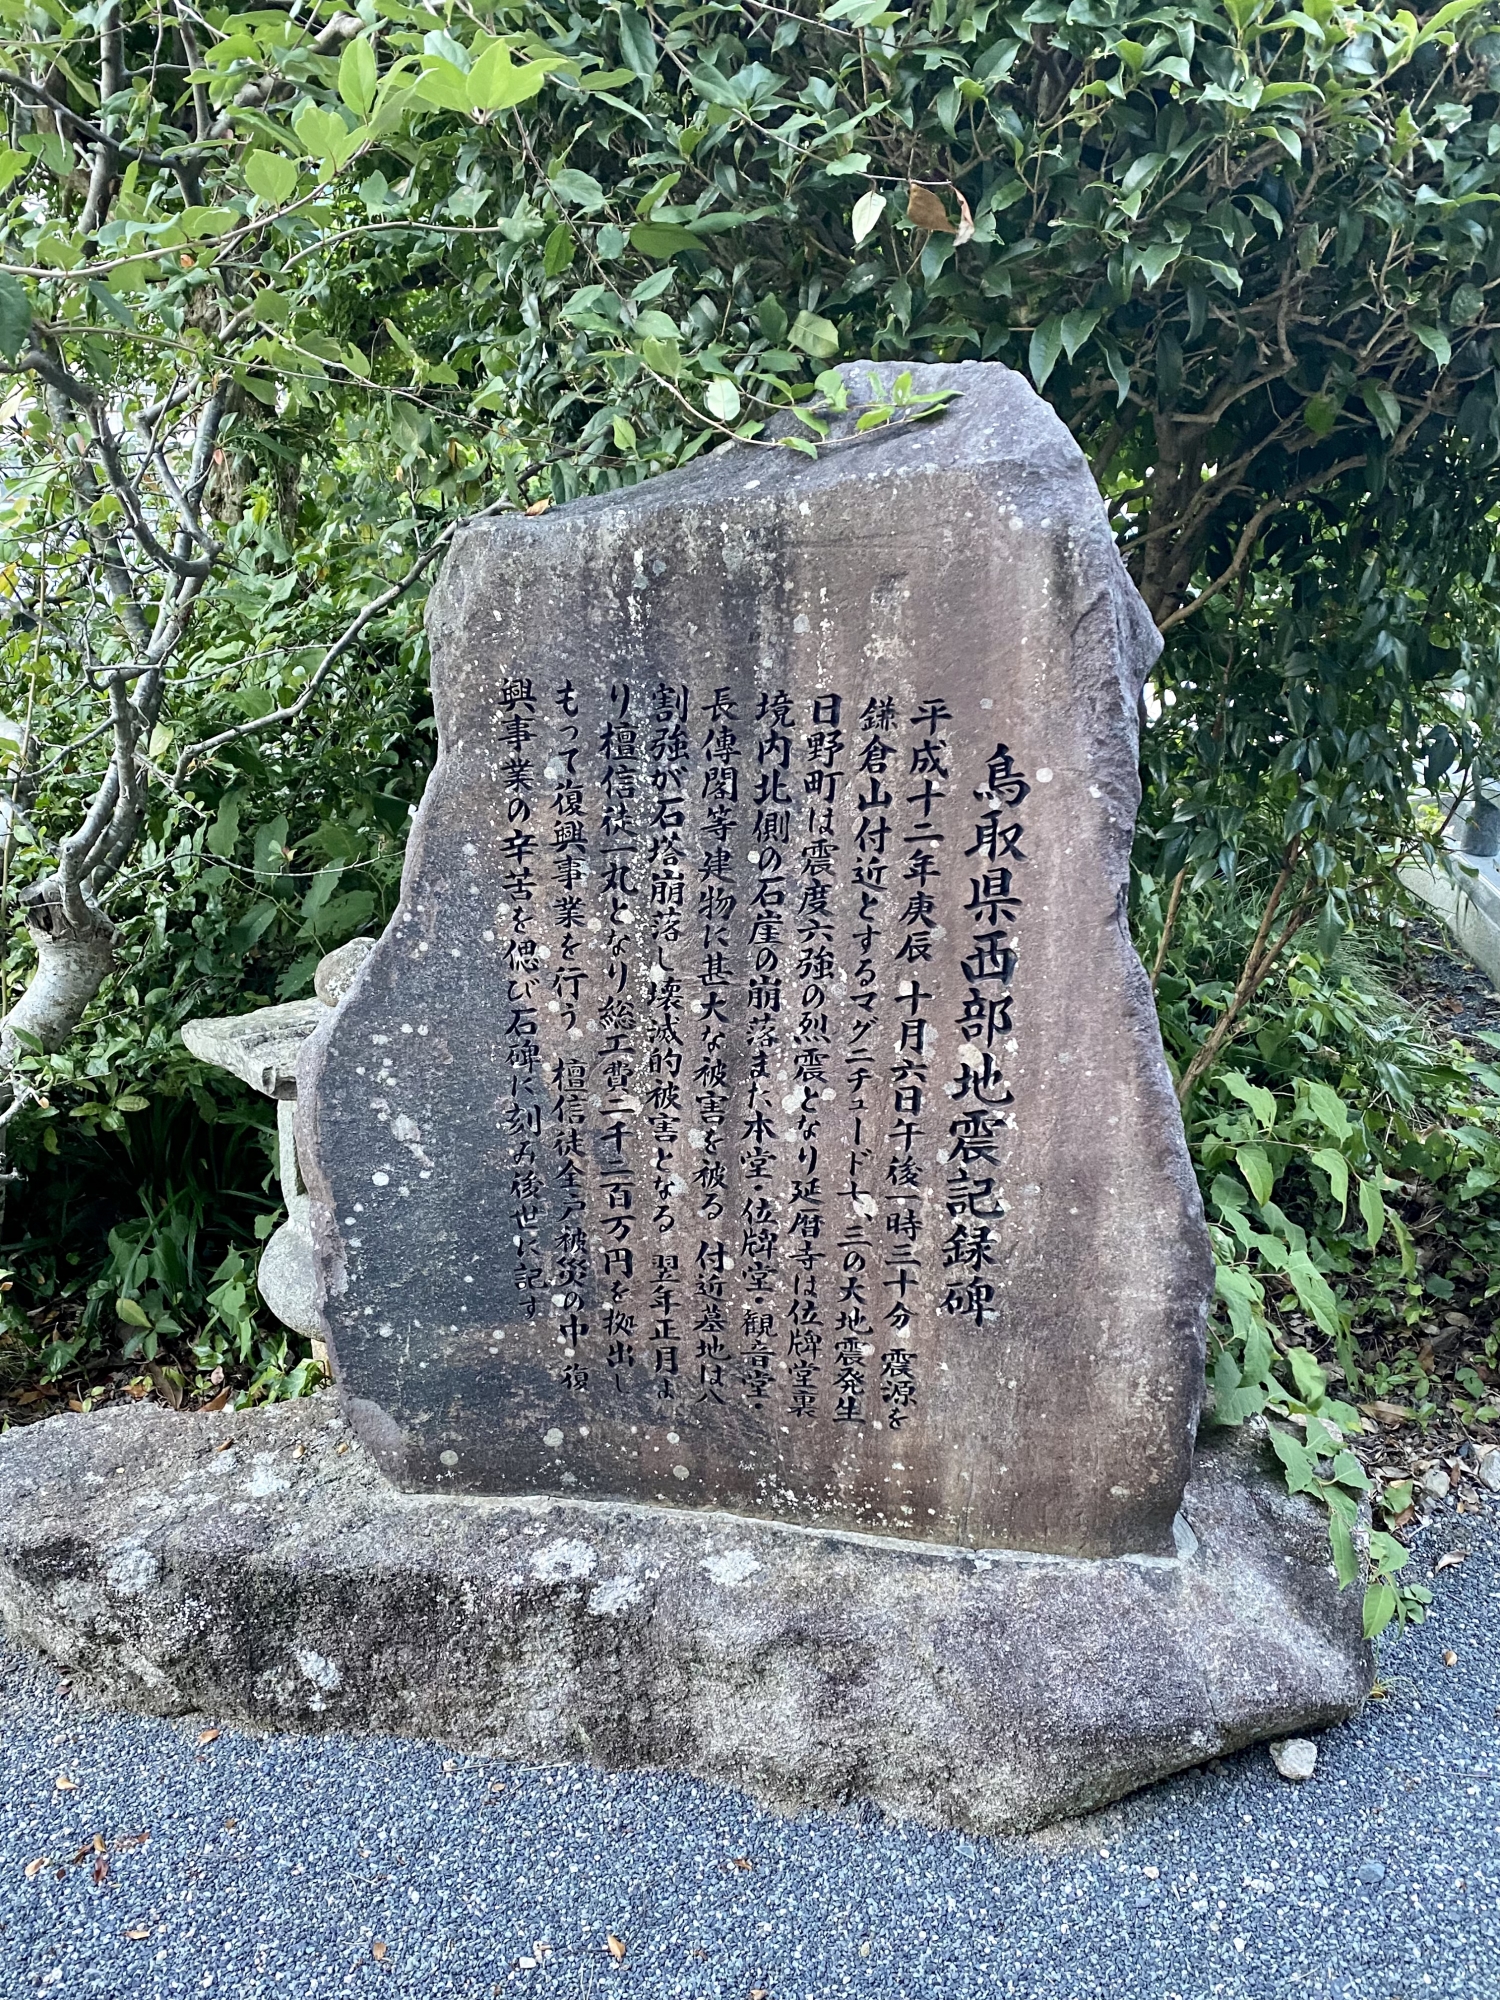 鳥取県西部地震記録碑
平成十二年庚辰 十月六日午後一時三十分 震源を
鎌倉山付近とするマグニチュード七、三の大地震発生
日野町は震度六強の烈震となり延暦寺は位牌堂裏
境内北側の石崖の崩落また本堂・位牌堂・観音堂・
長傳閣等建物に甚大な被害を被る 付近墓地は八
割強が石塔崩落し壊滅的被害となる 翌年正月よ
り檀信徒一丸となり総工費二千二百万円を拠出し
もって復興事業を行う 檀信徒全戸被災の中 復
興事業の辛苦を偲び石碑に刻み後世に記す